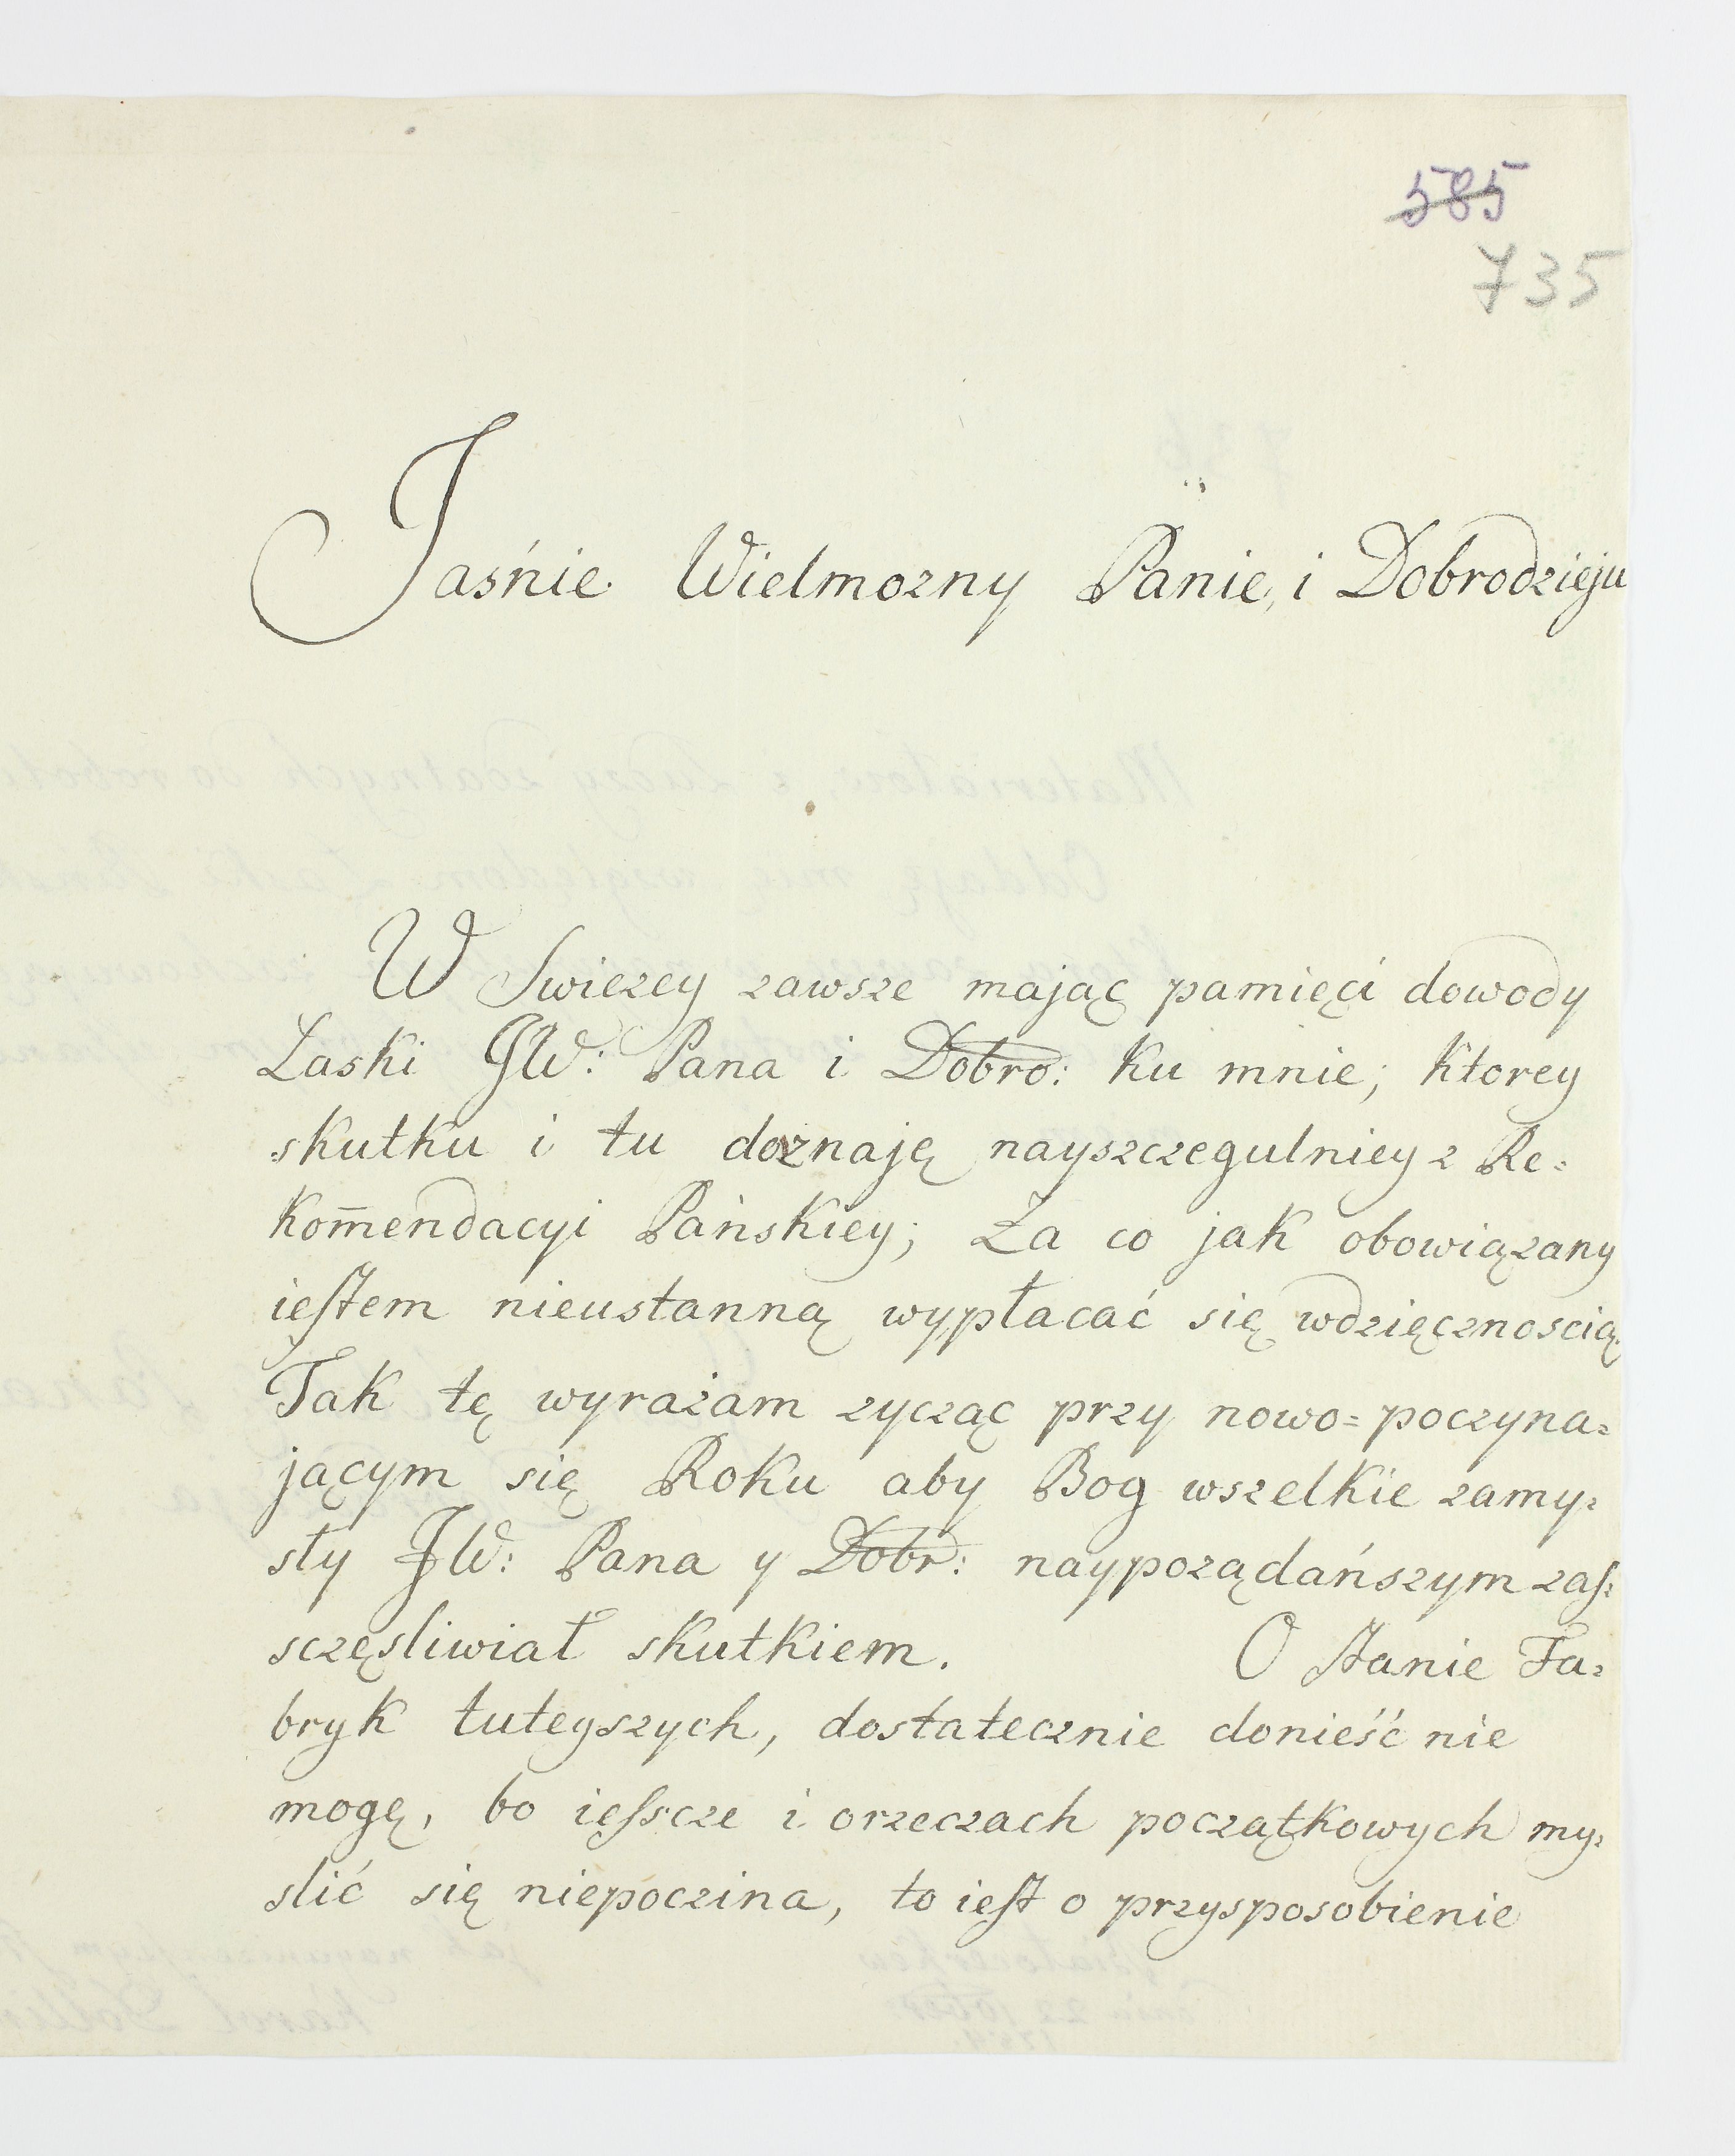 585
735
Jaśnie Wielmozny Panie, i Dobrodzieju
W Swiezey zawsze mając pamięci dowody
Łaski JW: Pana i Dobro: ku mnie; ktorey
skutku i tu doznaję nayszczegulniey z Re=
kom̅endacyi Pańskiey; Za co jak obowiązany
iestem nieustanną wypłacać się wdzięcznoscią.
Tak tę wyrażam zycząc przy nowo=poczyna=
jącym się Roku aby Bog wszelkie zamy=
sły JW: Pana y Dobr: naypoządańszym zas=
sczęsliwiał skutkiem. O Stanie Fa=
bryk tuteyszych, dostatecznie donieść nie
mogę, bo iesscze i orzeczach początkowych my=
slić się niepoczina, to iest o przysposobienie